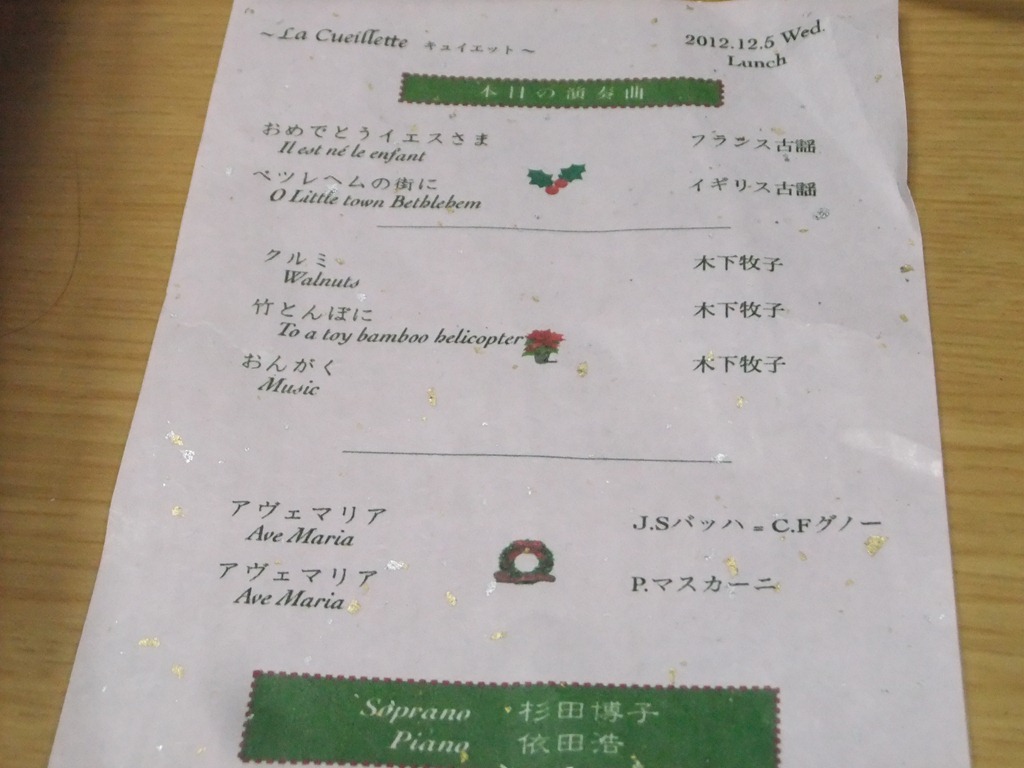 ~La Cueillette キュイエット~ 2012.12.5 Wed.
Lunch
本日の演奏曲
おめでとうイエスさま フランス古謡
Il est né le enfant
ベツレヘムの街に イギリス古謡
O Little town Bethlehem
クルミ 木下牧子
Walnuts
竹とんぼに 木下牧子
To a toy bamboo helicopter
おんがく 木下牧子
Music
アヴェマリア J.Sバッハ = C.Fグノー
Ave Maria
アヴェマリア P.マスカーニ
Ave Maria
Soprano 杉田博子
Piano 依田浩